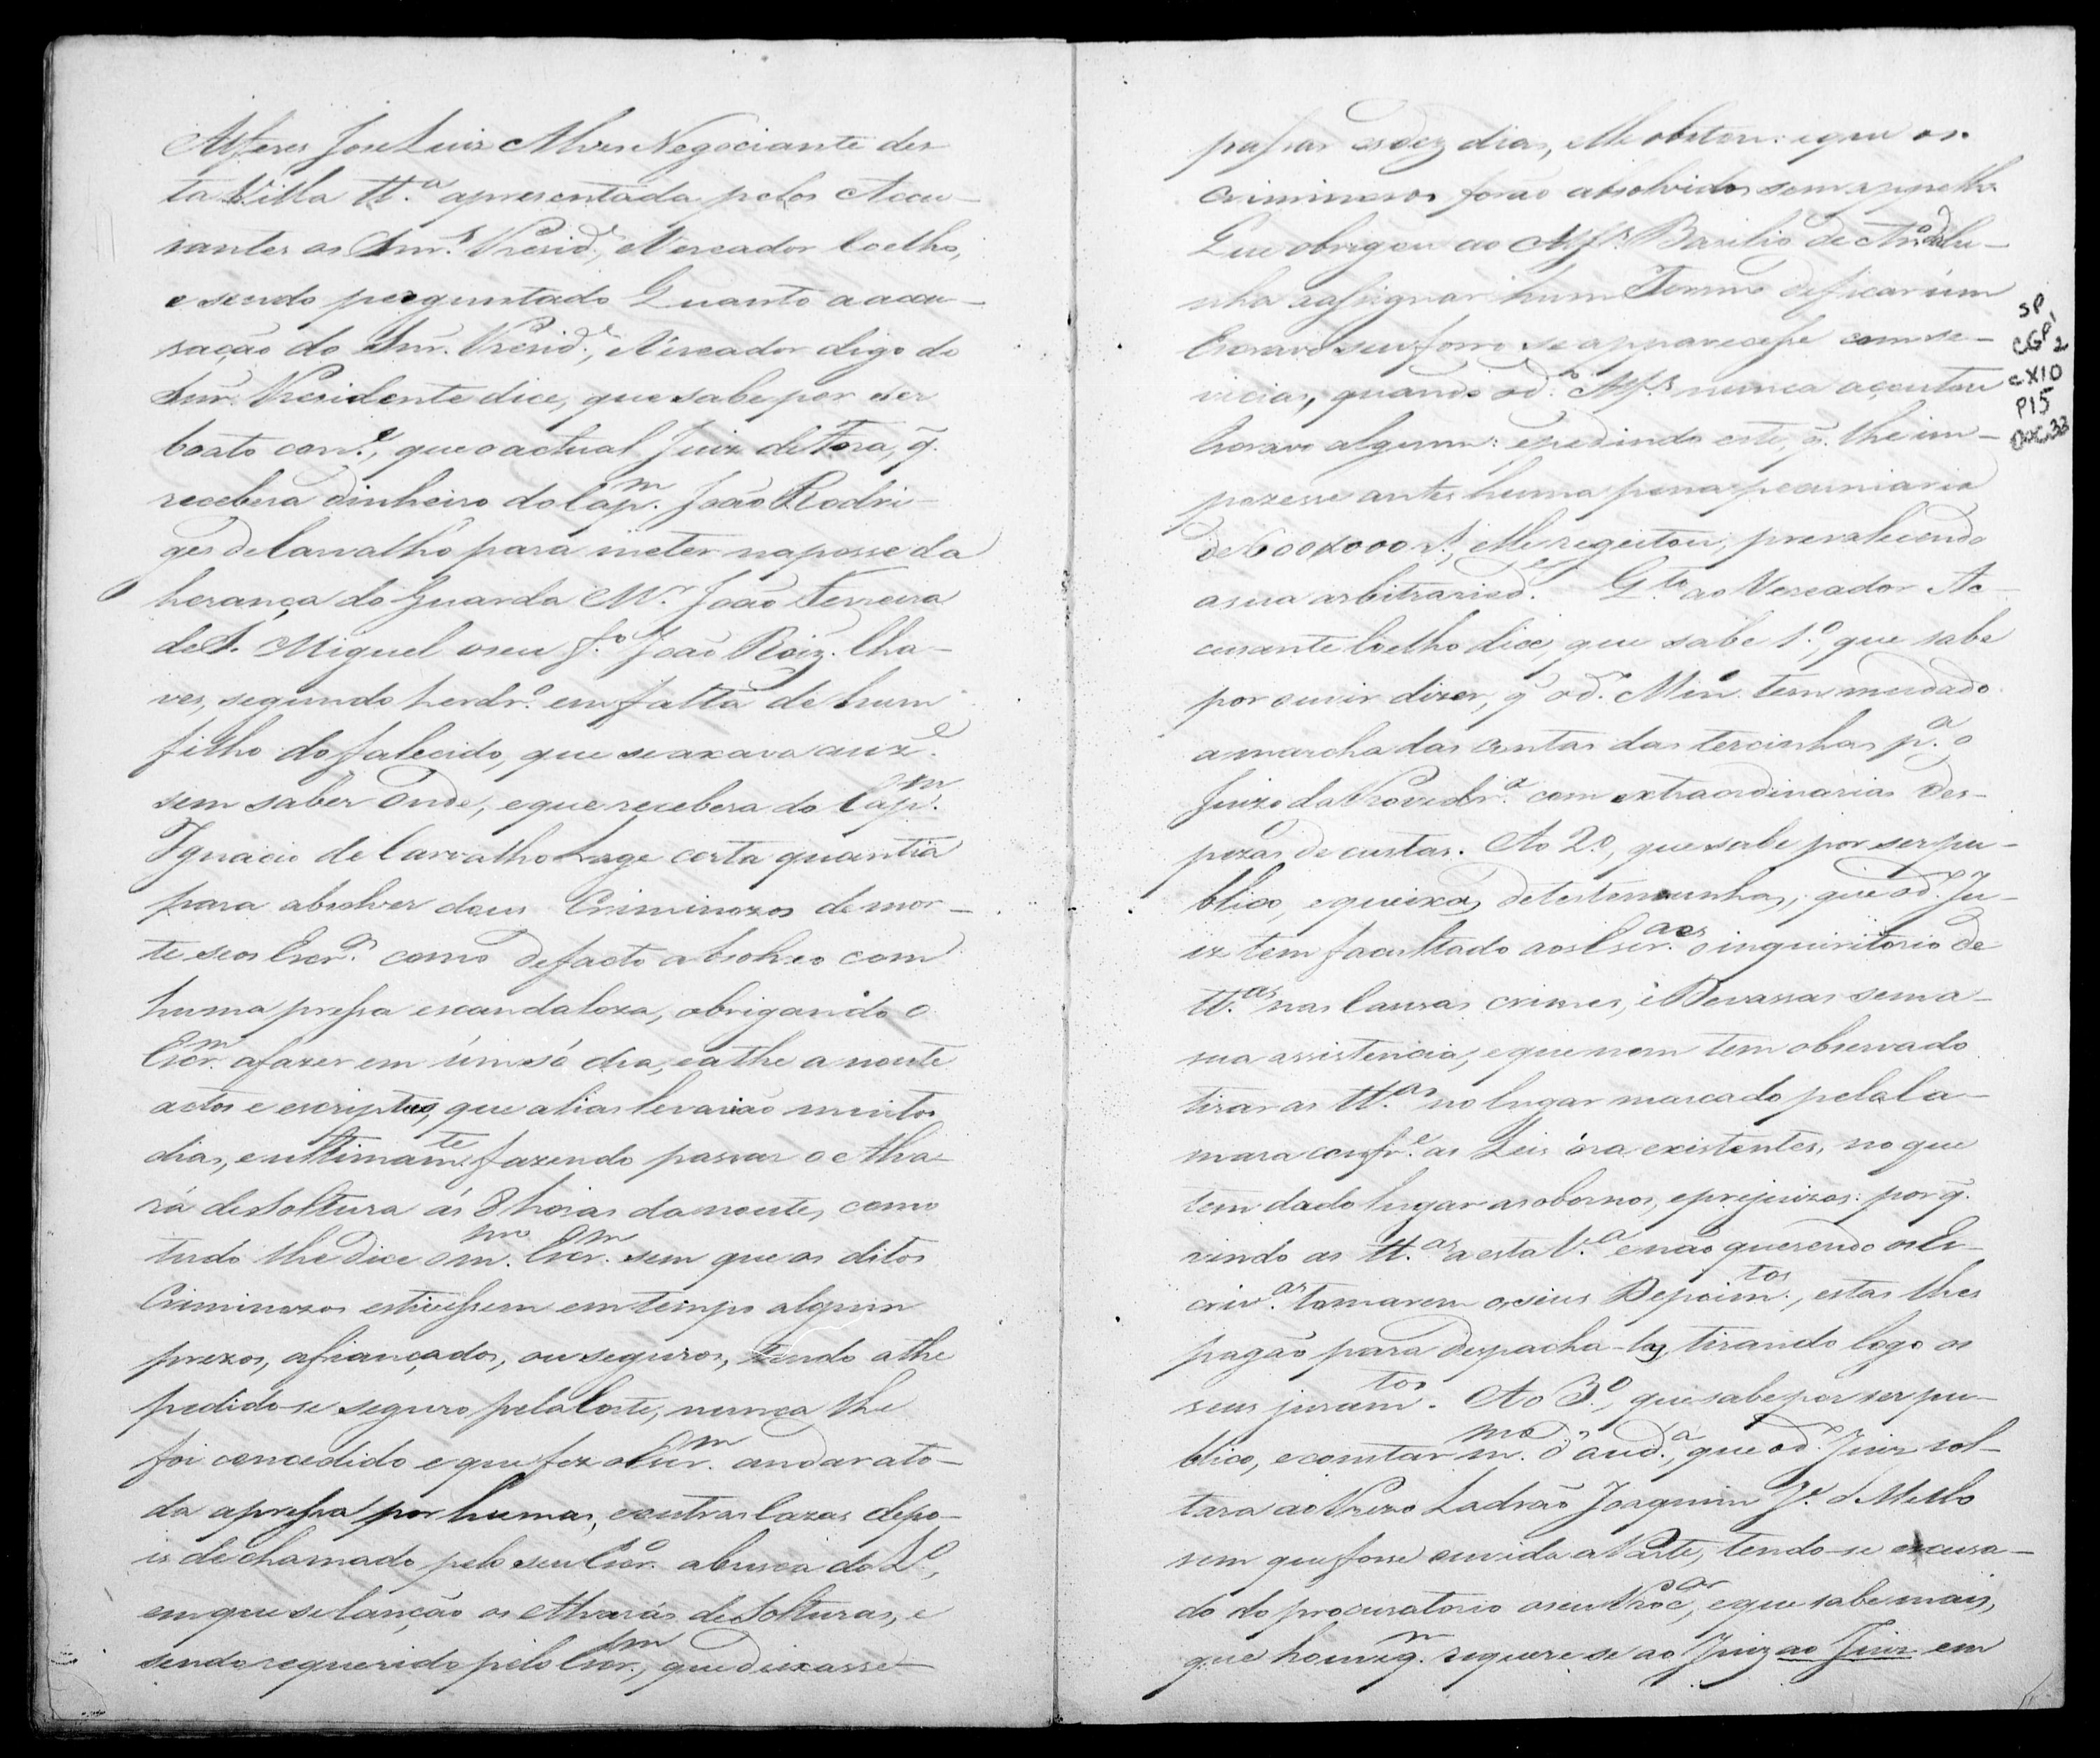 Alferes Jose Luiz Alves Negociante des-
ta Villa tt.ª apresentada pelos Accu-
santes os Snr.s Presid.e, e Vereador Coelho,
e sendo perguntado Quanto a accu-
sação do Snr. Presid.e, e Vereador digo do
Snr. Presidente dice, que sabe por ser
boato con.e, que o actual Juiz de Fora, q.
recebera dinheiro do Cap.m João Rodri-
ges de Carvalho para meter na posse da
herança do Guarda M.r João Ferreira
de S. Miguel o seu f.o João Roiz. Cha-
ves, segundo herdr.o em falta de hum
filho do falecido, que se axava auz.e
sem saber onde, e que recebera do Cap.m
Ignacio de Carvalho Lage certa quantia
para absolver dous Criminozos de mor-
te seos Escr.os como de facto absolveo com
huma pressa escandaloza, obrigando o
Escr.m a fazer em úm só dia, e athe a noute
actos e escriptas, que alias levarião muitos
dias, e ultimam.te fazendo passar o Alva-
rá de Soltura ás 8 horas da noute, como
tudo lhe dice o m.mo Escr.m sem que os ditos
Criminozos estivessem em tempo algum
prezos, afiançados, ou seguros, tendo athe
pedido-se seguro pela Corte, nunca lhe
foi concedido e que fez o Escr.m andar a to-
da apressa por humas, e outras Cazas depo-
is de chamado pelo seu Escr.o a busca do L.o,
em que se lanção os Alvarás de Solturas, e
sendo requerido pelo Escr.m, que deixasse
passar os dez dias, elle obstou: e que os
criminosos forão absolvidos sem appello
Que obrigou ao Alf.s Basilio de An.o da Cu-
nha a assignar hum Termo de ficar úm
Escravo seu forro se apparecesse com se-
vicias, quando o d.o Alf.s nunca açoutou
Escravo algum: e pedindo este, q. lhe im-
pozesse antes huma pena pecuniaria
de 600$000 r.s, elle regeitou, prevalecendo
a sua arbitraried.e Q.to ao Vereador Ac-
cusante Coelho dice, que sabe 1.o, que sabe
por ouvir dizer, q o d.o Min.o tem mudado
a marcha das contas das tercinhas p.a o
Juizo da Provedr.a com extraordinarias des-
pezas de custas. Ao 2.o, que sabe por ser pu-
blico, e queixas de testemunhas, que o d.o Ju-
iz tem facultado aos Escr.aes o inquiritorio de
tt.as nas Causas crimes, e Devassas sem a
sua assistencia, e que nem tem observado
tirar as tt.as no lugar marcado pela Ca-
mara conf.e as Leis óra existentes, no que
tem dado lugar a sobornos, e prejuizos: por q.
vindo as tt.as a esta V.a e não querendo os Es-
criv.as tomarem os seus Depoim.tos, estas lhes
pagão para despacha-las, tirando logo os
seus juram.tos. Ao 3.o, que sabe por ser pu-
blico, e constar m.mo d' aud.a, que o d.o Juiz sol-
tara ao Prezo Ladrão Joaquim J.e d'Mello
sem que fosse ouvida a Parte, tendo-se escusa-
do do procuratorio o seu Proc.or, e que sabe mais,
que houve q.m requere se ao Juiz ao Juiz em
SP
CGP1
2
CX10
P15
DOC.33